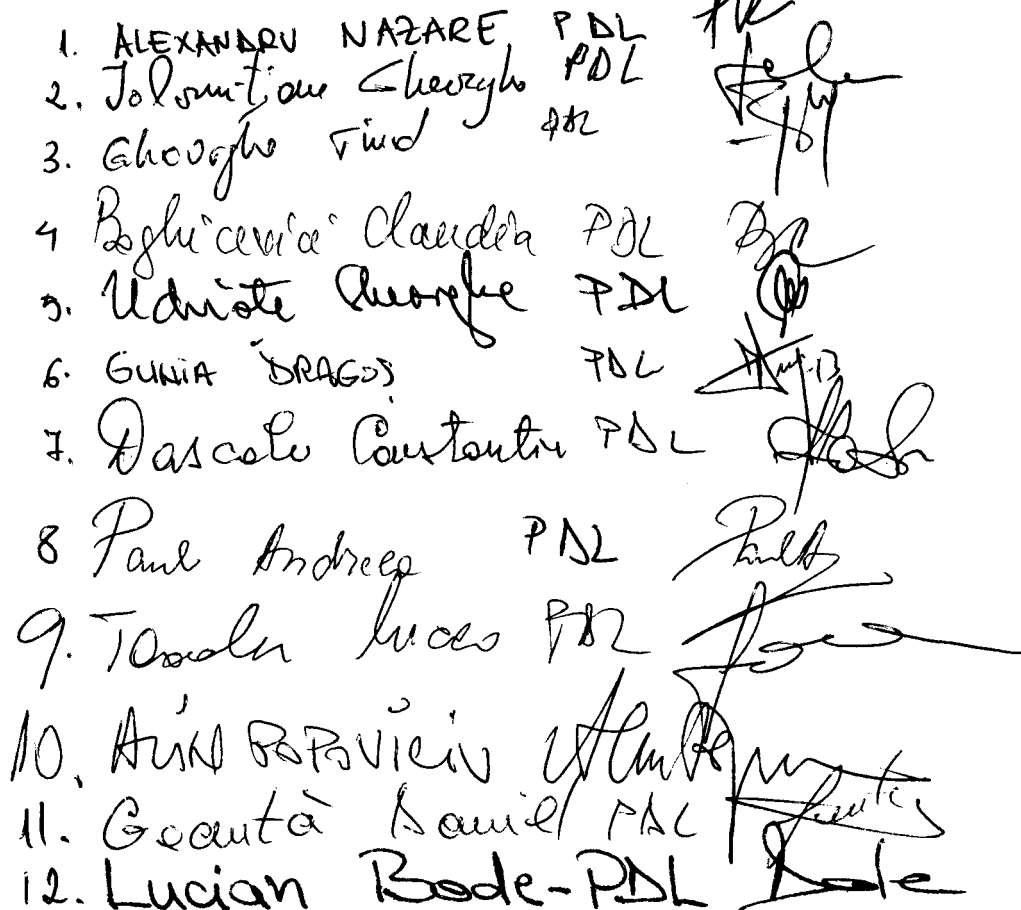 1. ALEXANDRU NAZARE PDL
2. Ialomițianu Gheorghe PDL
3. Gheorghe Tinel PDL
4 Boghicevici Claudia PDL
5. Udriște Gheorghe PDL
6. GUNIA DRAGOȘ PDL
7. Dascalu Constantin PDL
8 Paul Andreea PDL
9. PDL
10. ALIN POPOVICIU
11. Geantă Daniel PDL
12. Lucian Bode-PDL Bode